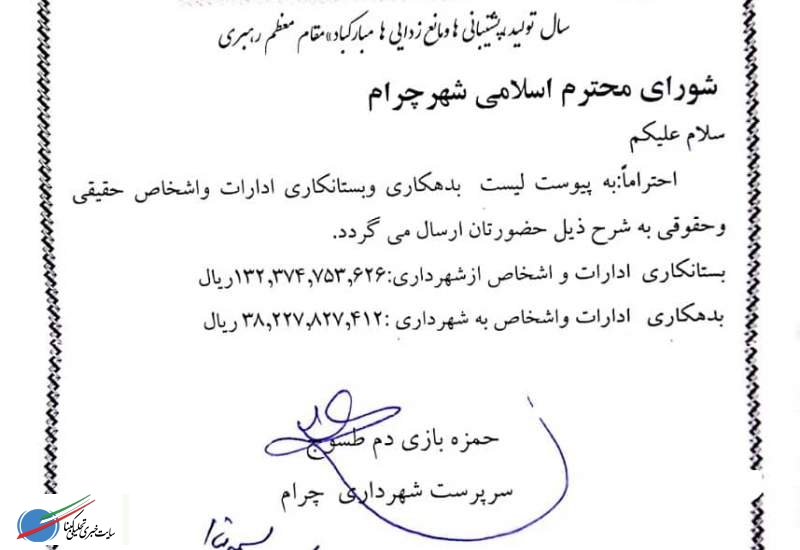 سال تولید،پشتیبانی ها ومانع زدایی ها مبارکباد»مقام معظم رهبری
شورای محترم اسلامی شهر چرام
سلام علیکم
احتراماً:به پیوست لیست بدهکاری وبستانکاری ادارات واشخاص حقیقی
وحقوقی به شرح ذیل حضورتان ارسال می گردد.
بستانکاری ادارات و اشخاص ازشهرداری:۱۳۲,۳۷۴,۷۵۳,۶۲۶ریال
بدهکاری ادارات واشخاص به شهرداری :۳۸,۲۲۷,۸۲۷,۴۱۲ ریال
حمزه بازی دم طسوج
سرپرست شهرداری چرام
سایت خبری تحلیلی کبنا